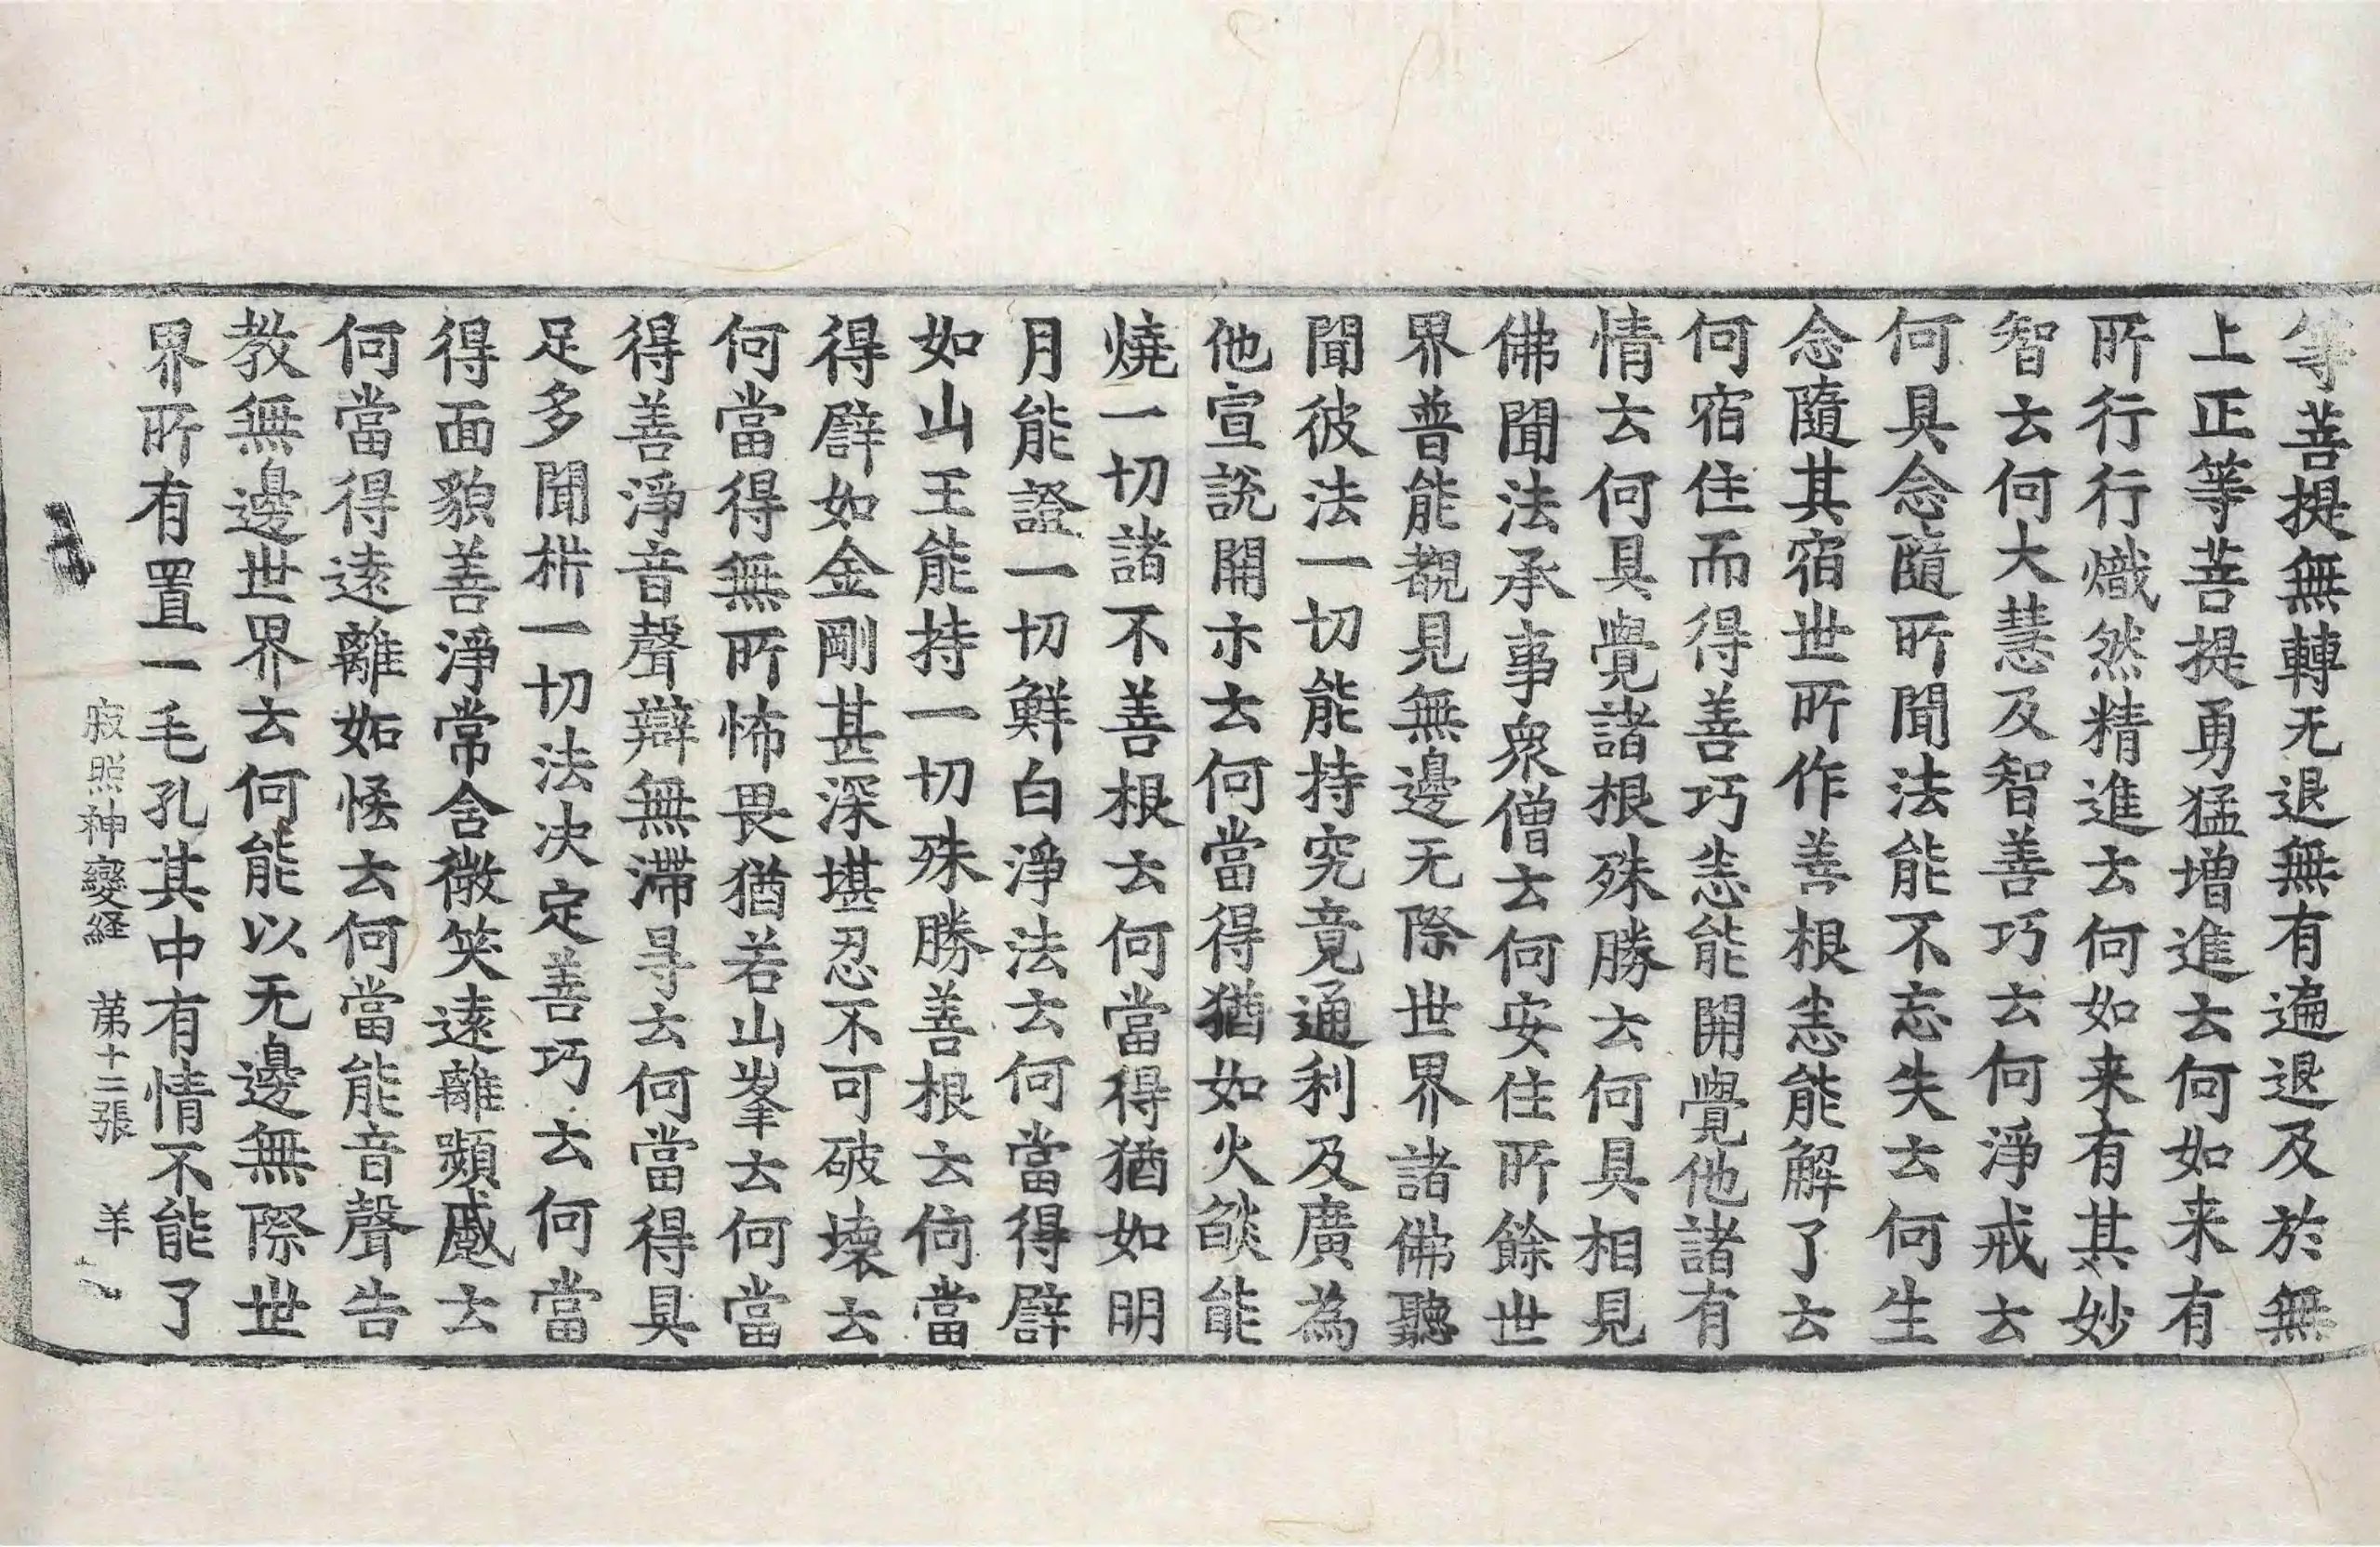 等菩提無轉无退無有遍退及於無
上正等菩提勇猛增進去何如来有
所行行熾然精進去何如来有其妙
智去何大慧及智善巧去何淨戒去
何具念隨所聞法能不忘失去何生
念隨其宿世所作善根恙能解了去
何宿住而得善巧恙能開覺他諸有
情去何具覺諸根殊勝去何具相見
佛聞法承事衆僧去何安住所餘世
界普能觀見無邊无際世界諸佛聽
聞彼法一切能持究竟通利及廣為
他宣說開示去何當得猶如火燄能
燒一切諸不善根去何當得猶如明
月能證一切鮮白淨法去何當得譬
如山王能持一切殊勝善根去何當
得譬如金剛甚深堪忍不可破壞去
何當得無所怖畏猶若山峯去何當
得善淨音聲辯無滯㝵去何當得具
足多聞於一切法决定善巧去何當
得面貌善淨常舍微笑遠離顰蹙去
何當得遠離姤悋去何當能音聲告
教無邊世界去何能以无邊無際世
界所有置一毛孔其中有情不能了
寂照神變経 苐十二張 羊